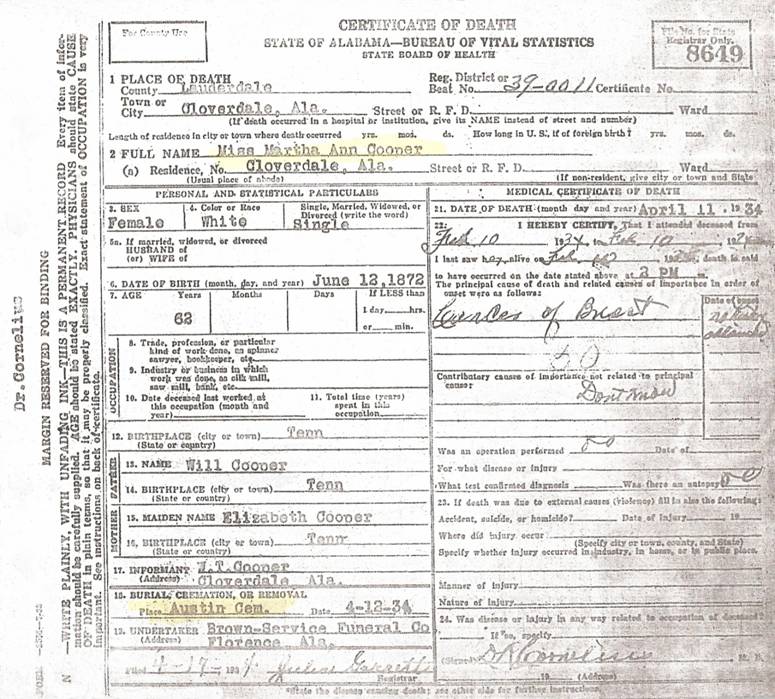 For County Use
CERTIFICATE OF DEATH
STATE OF ALABAMA—BUREAU OF VITAL STATISTICS
STATE BOARD OF HEALTH
File No. for State
Registrar Only.
8649
1 PLACE OF DEATH
County Lauderdale
Reg. District or
Beat No. 39-0011 Certificate No.
Town or
City Cloverdale, Ala. Street or R. F. D. Ward
(If death occurred in a hospital or institution, give its NAME instead of street and number)
Length of residence in city or town where death occurred yrs. mos. ds. How long in U. S., if of foreign birth? yrs. mos. ds.
2 FULL NAME Miss Martha Ann Cooper
(a) Residence, No. Cloverdale, Ala. Street or R. F. D. Ward
(Usual place of abode) (If non-resident, give city or town and State
PERSONAL AND STATISTICAL PARTICULARS
3. SEX
Female
4. Color or Race
White
Single, Married, Widowed, or
Divorced (write the word)
Single
5a. If married, widowed, or divorced
HUSBAND of
(or) WIFE of
6. DATE OF BIRTH (month, day, and year) June 12,1872
7. AGE Years Months Days If LESS than
1 day----hrs.
or---- min.
62
OCCUPATION
8. Trade, profession, or particular
kind of work done, as spinner
sawyer, bookkeeper, etc.
9. Industry or business in which
work was done, as silk mill,
saw mill, bank, etc.
10. Date deceased last worked at
this occupation (month and
year)
11. Total time (years)
spent in this
occupation
12. BIRTHPLACE (city or town) Tenn
(State or country)
FATHER
13. NAME Will Cooper
14. BIRTHPLACE (city or town) Tenn
(State or country)
MOTHER
15. MAIDEN NAME Elizabeth Cooper
16. BIRTHPLACE (city or town) Tenn
(State or country)
17. INFORMANT W.T.Cooper
(Address) Cloverdale Ala.
18. BURIAL, CREMATION, OR REMOVAL
Place Austin Cem. Date 4-12-34
19. UNDERTAKER Brown-Service Funeral Co
(Address) Florence, Ala.
Filed 4-17-1934
Registrar
MEDICAL CERTIFICATE OF DEATH
21. DATE OF DEATH (month day and year) April 11 .1934
22. I HEREBY CERTIFY, That I attended deceased from
Feb 10 1934, to Feb 10
I last saw her alive on Feb death is said
to have occurred on the date stated above at 2 PM m.
The principal cause of death and related causes of importance in order of
onset were as follows:
Date of onset
of Breast
50
Contributory causes of importance not related to principal
cause:
Dont know
Was an operation performed Date of
For what disease or injury
What test confirmed diagnosis Was there an autopsy
23. If death was due to external causes (violence) fill in also the following:
Accident, suicide, or homicide? Date of injury 19
Where did injury occur
(Specify city or town, county, and State)
Specify whether injury occurred in industry, in home, or in public place.
Manner of injury
Nature of injury
24. Was disease or injury in any way related to occupation of
If so, specify
(Signed) D R Cornelius M. D.
19 (Address)
*State the disease causing death; see other side for further instructions
Dr.Cornelius
MARGIN RESERVED FOR BINDING
N —WRITE PLAINLY, WITH UNFADING INK—THIS IS A PERMANENT RECORD Every item of infor-
mation should be carefully supplied. AGE should be stated EXACTLY. PHYSICIANS should state CAUSE
OF DEATH in plain terms, so that it may be properly classified. Exact statement of OCCUPATION is very
important. See instructions on back of certificate.